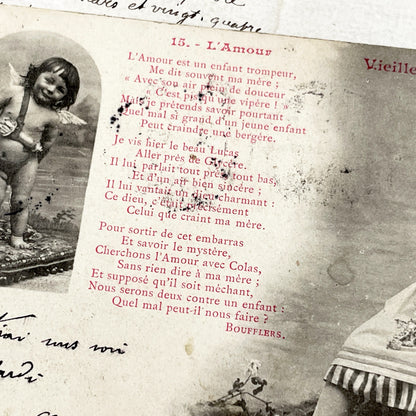 mars et vingt, quatre
15. - L'Amour
Vieille
L'Amour est un enfant trompeur,
Me dit souvent ma mère ;
« Avec son air plein de douceur
« C'est pis qu'une vipère ! »
Mais je prétends savoir pourtant
Quel mal si grand d'un jeune enfant
Peut craindre une bergère.
Je vis hier le beau Lucas
Aller près de Glycère.
Il lui parlait tout près, tout bas,
Et d'un air bien sincère ;
Il lui vantait un dieu charmant :
Ce dieu, c'était précisément
Celui que craint ma mère.
Pour sortir de cet embarras
Et savoir le mystère,
Cherchons l'Amour avec Colas,
Sans rien dire à ma mère ;
Et supposé qu'il soit méchant,
Nous serons deux contre un enfant :
Quel mal peut-il nous faire ?
BOUFFLERS.